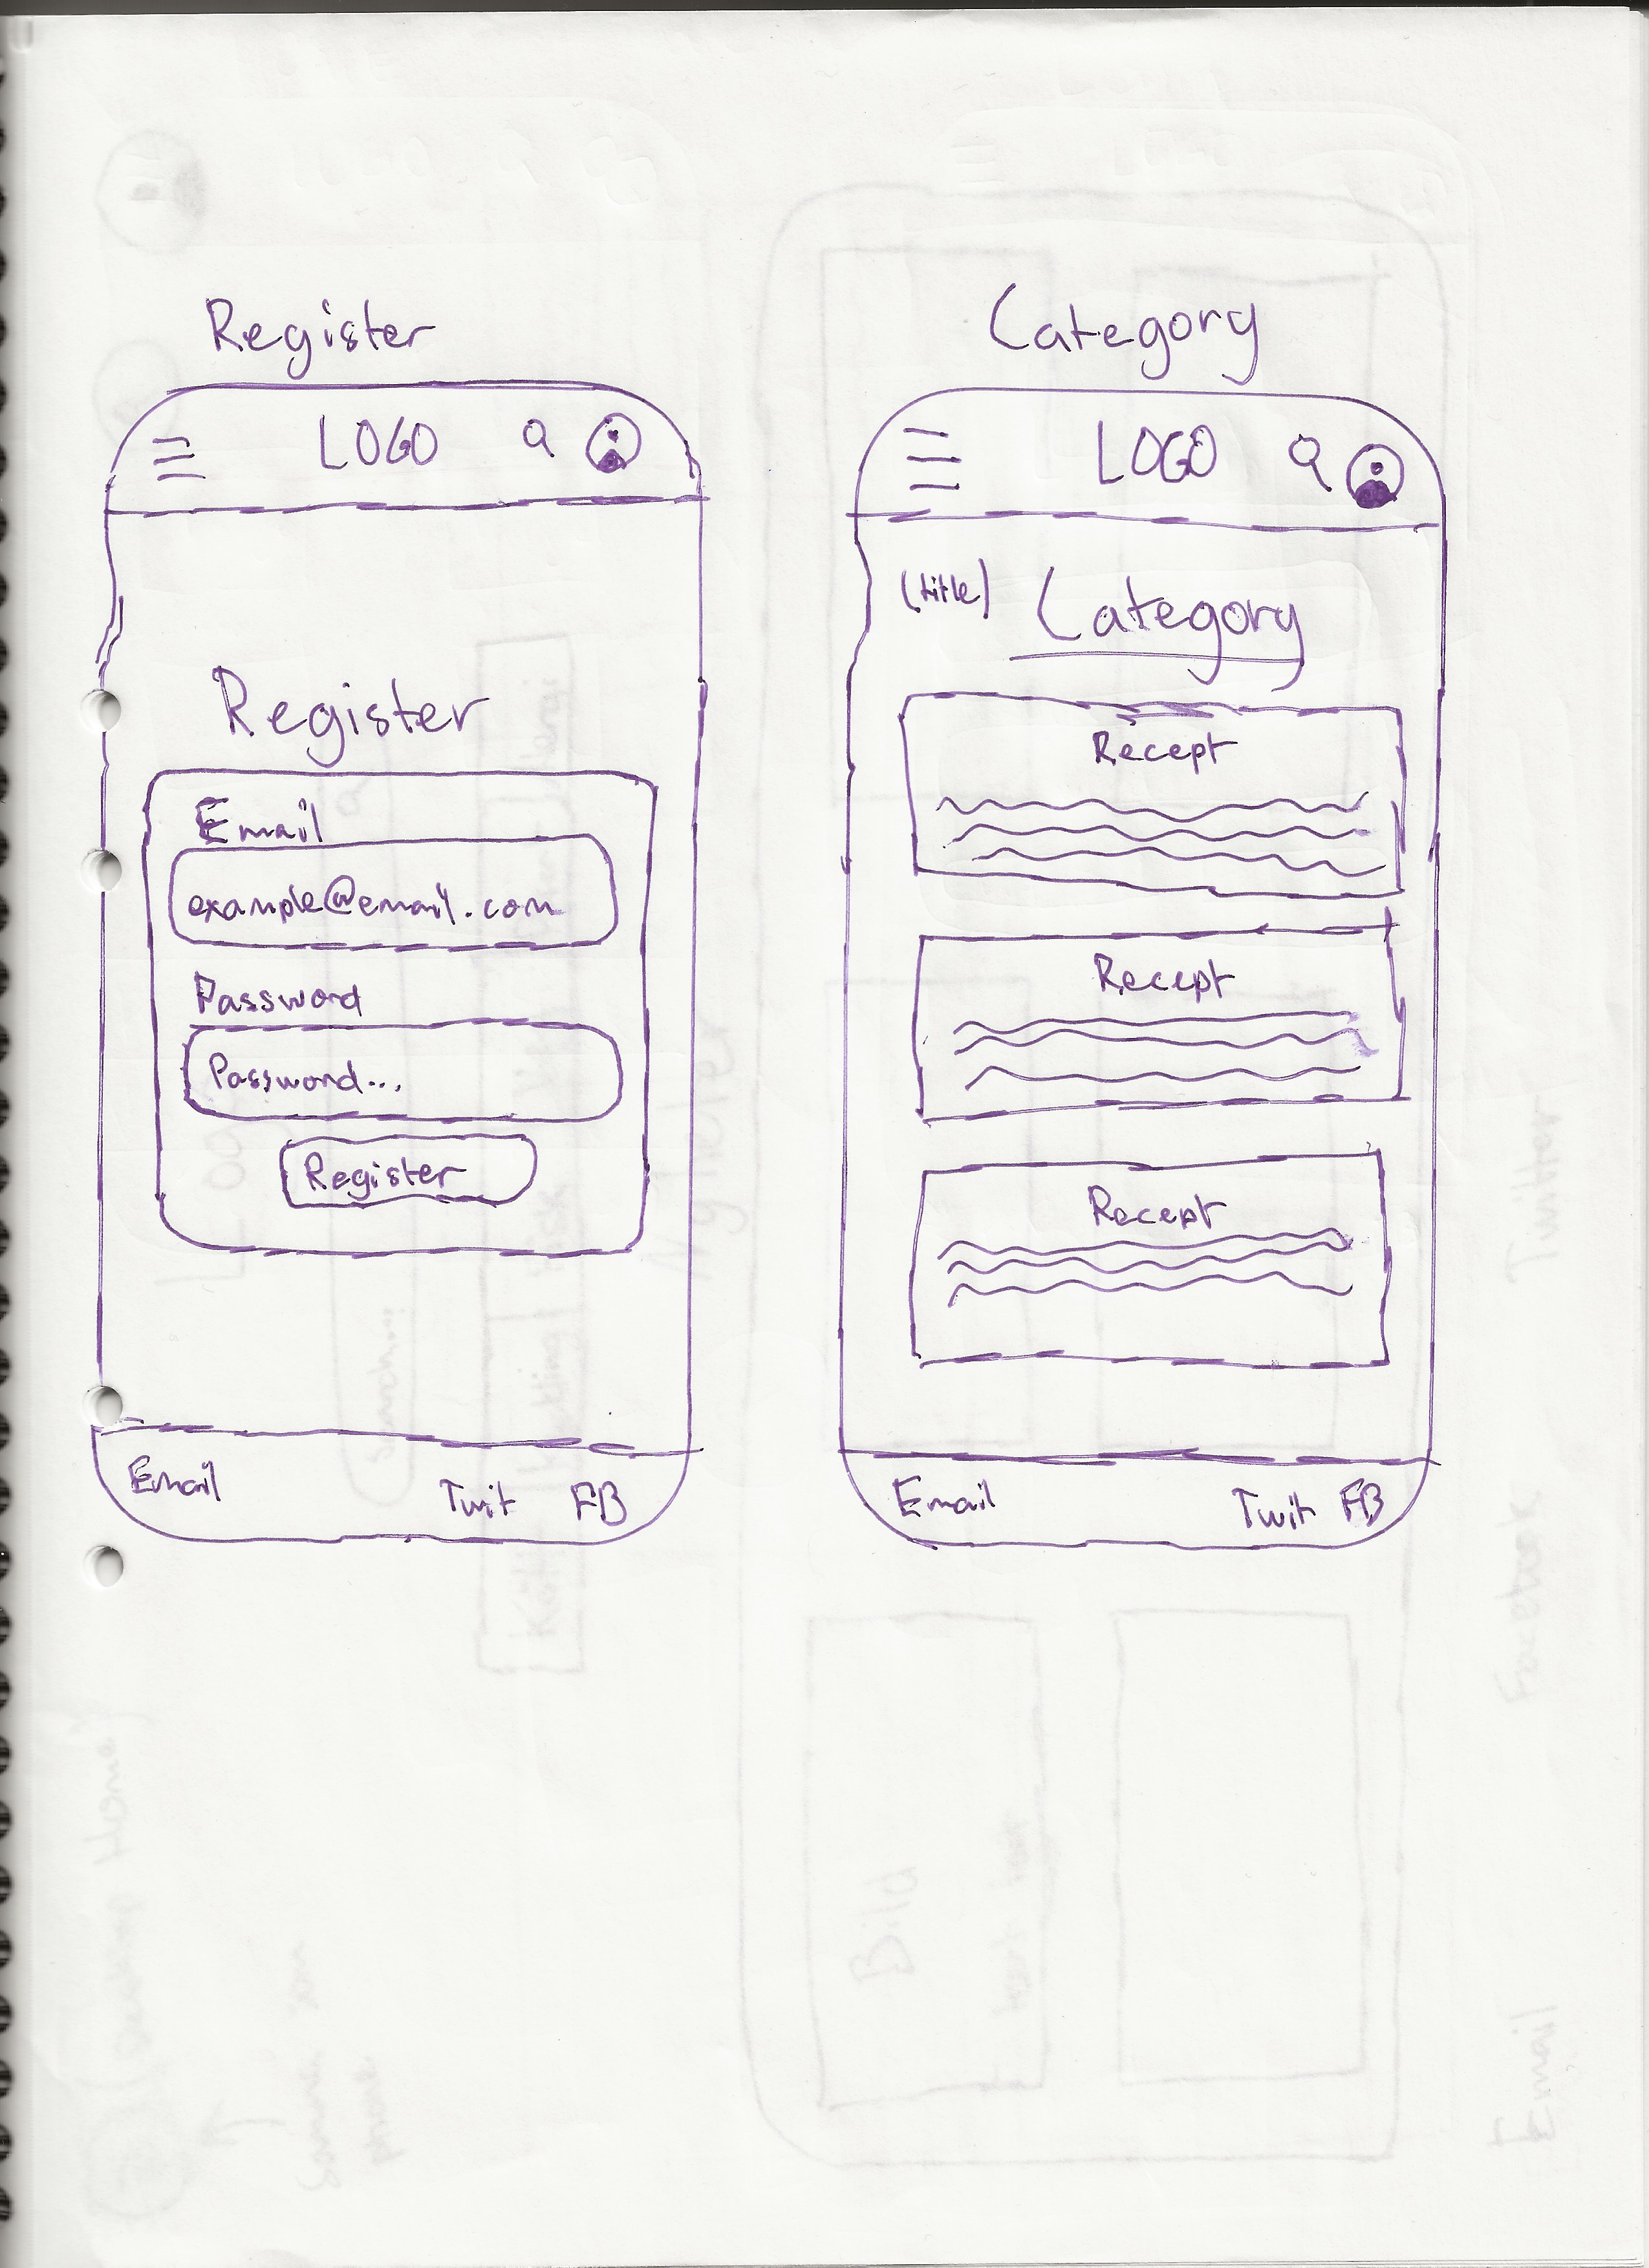 Register
LOGO
Register
Email
example@email.com
Password
Password...
Register
Email Twit FB
Category
LOGO
(title) Category
Recept
Recept
Recept
Email Twit FB
Twitter
Facebook
Email
Bild